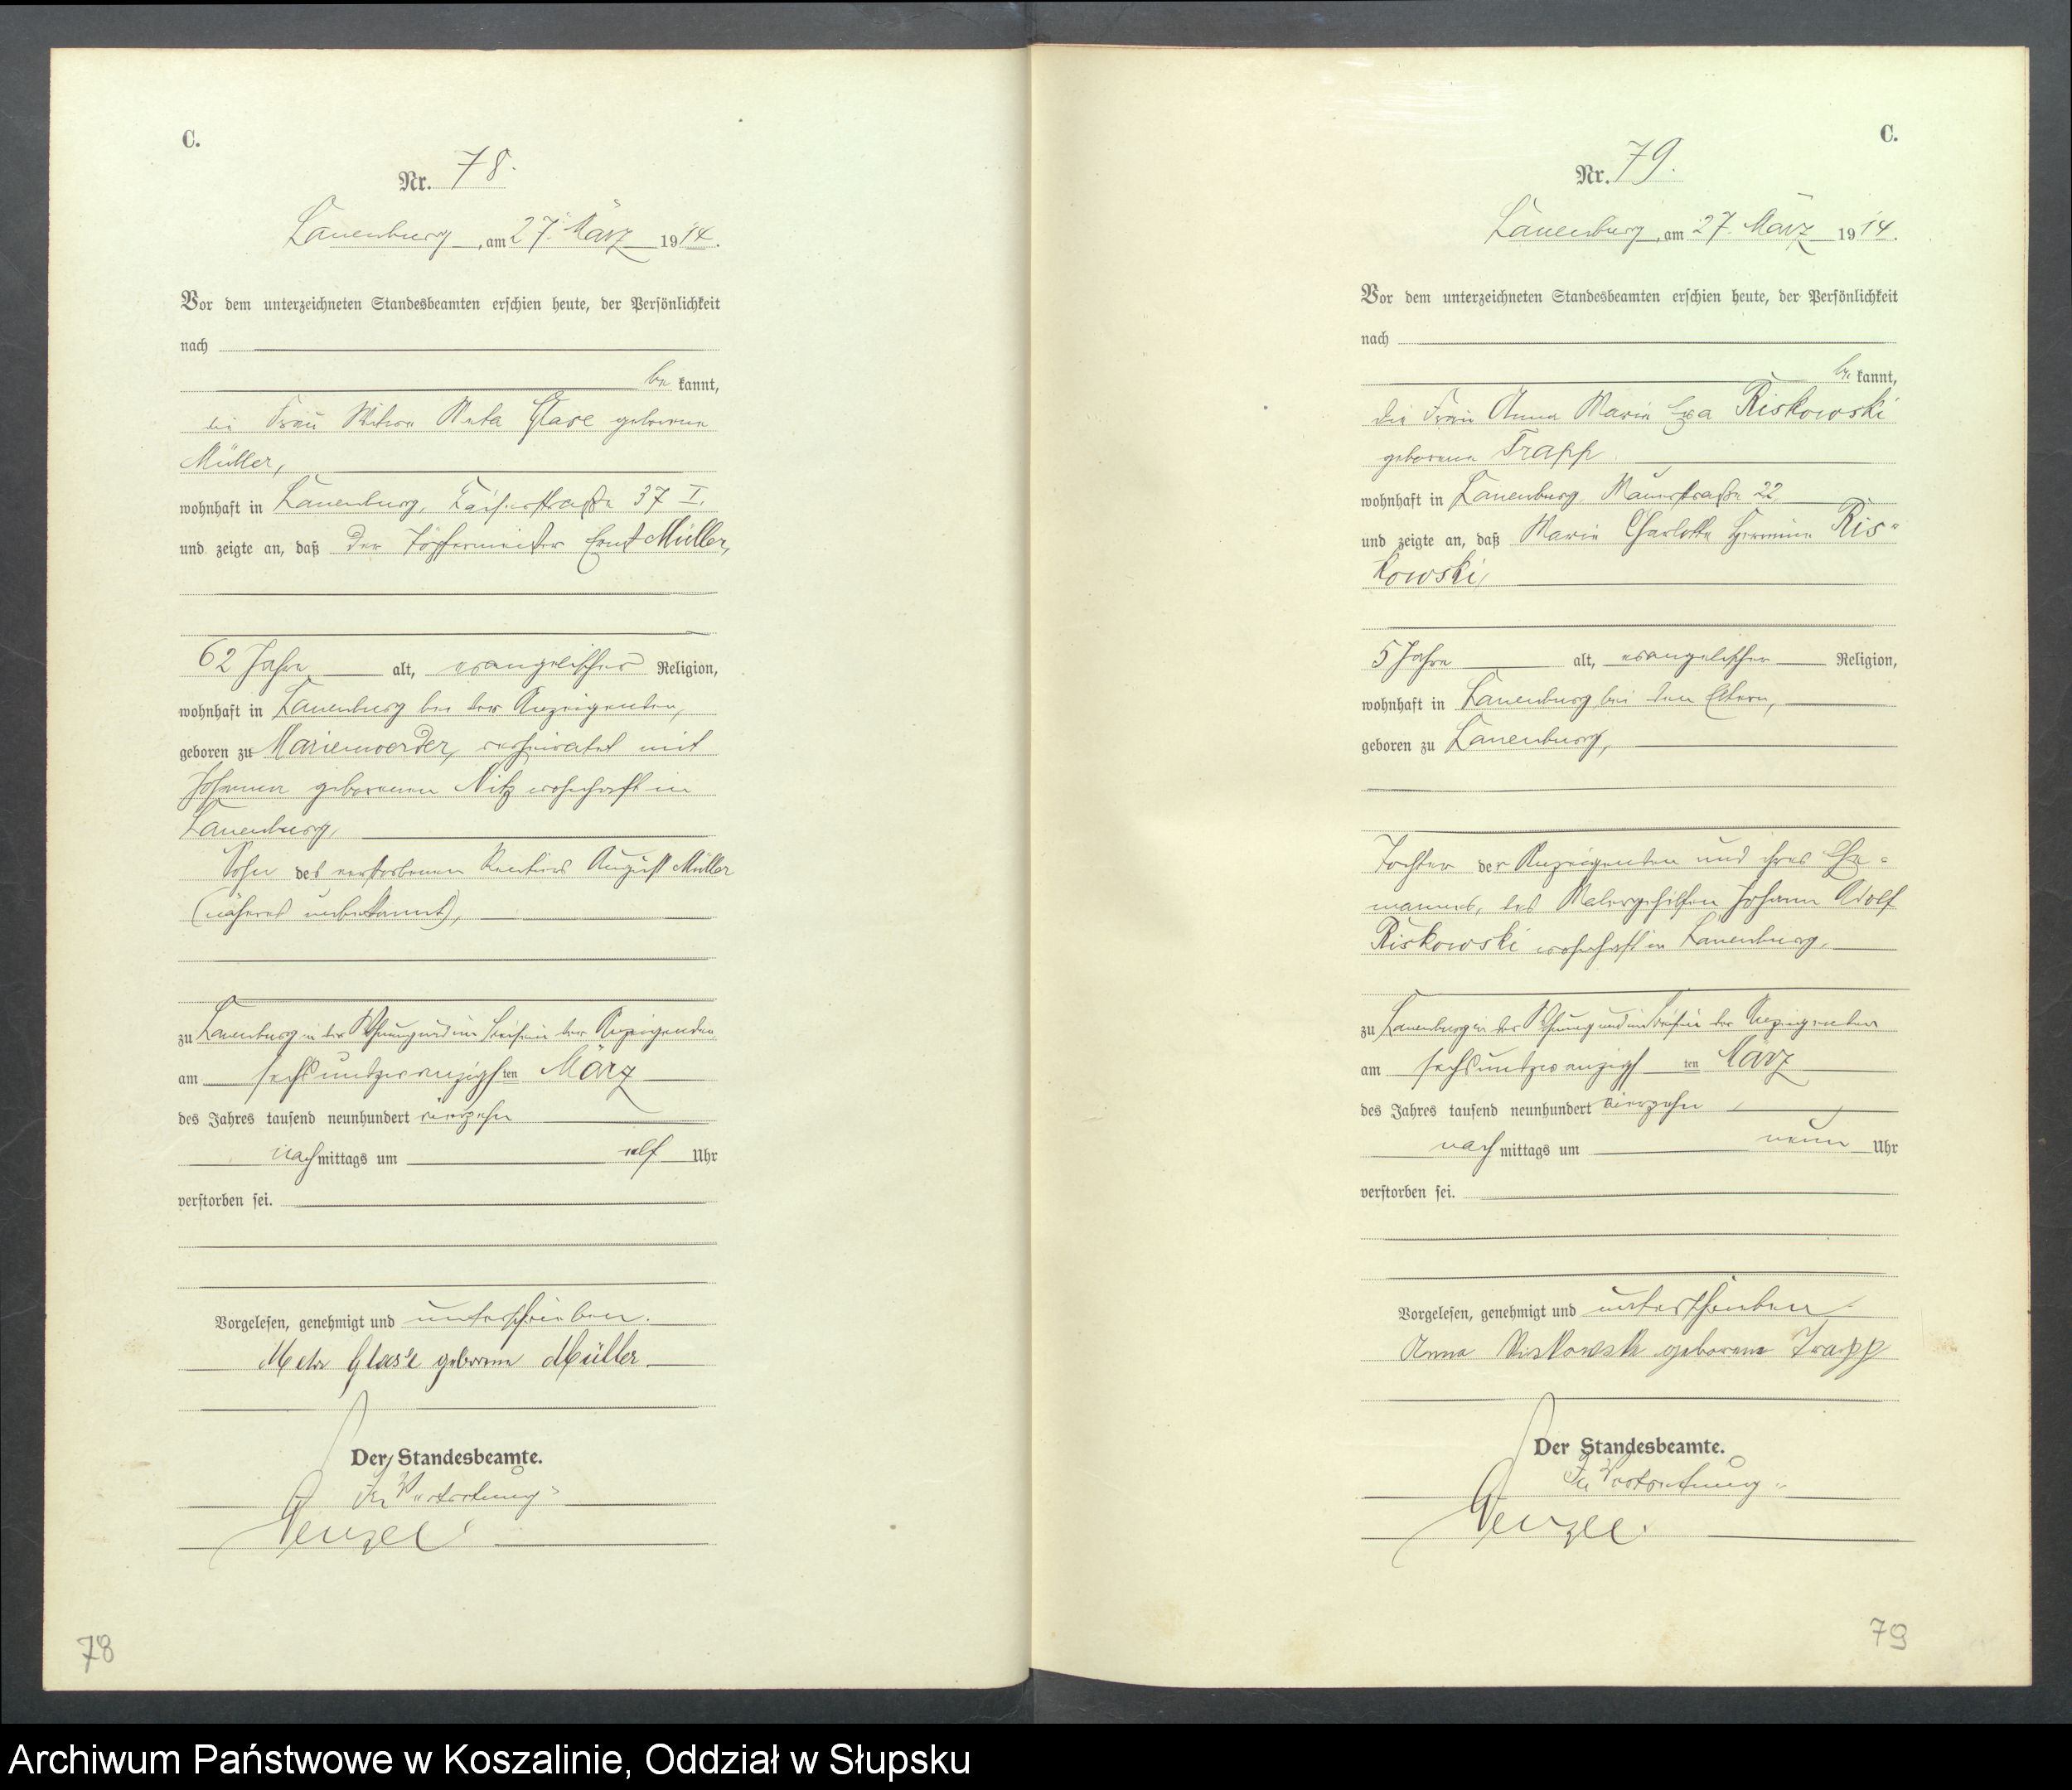 C.
Nr. 78.
Lauenburg, am 27. März 1914.
Vor dem unterzeichneten Standesbeamten erschien heute, der Persönlichkeit
nach
be kannt,
die Frau Meta Glase geborene
Müller,
wohnhaft in Lauenburg, 37 I.
und zeigte an, daß der Töpfermeister Ernst Müller,
62 Jahre alt, evangelischer Religion,
wohnhaft in Lauenburg bei der Anzeigenden,
geboren zu Marienwerder, verheiratet mit
Johanna geborenen Nitz wohnhaft in
Lauenburg,
Sohn des verstorbenen Rentiers August Müller
(näheres unbekannt),
zu Lauenburg in der Wohnung und im Beisein der Anzeigenden
am sechsundzwanzigsten März
des Jahres tausend neunhundert vierzehn
nachmittags um elf Uhr
verstorben sei.
Vorgelesen, genehmigt und unterschrieben.
Meta Glase geborene Müller.
Der Standesbeamte.
In Vertretung
Wenzel.
78
C.
Nr. 79.
Lauenburg, am 27. März 1914.
Vor dem unterzeichneten Standesbeamten erschien heute, der Persönlichkeit
nach
be kannt,
die Frau Anna Marie Riskowski
geborene Trapp
wohnhaft in Lauenburg, Mauerstraße 22
und zeigte an, daß Marie Charlotte Hermine Ris-
kowski,
5 Jahre alt, evangelischer Religion,
wohnhaft in Lauenburg bei den Eltern,
geboren zu Lauenburg,
Tochter der Anzeigenden und ihres Ehe-
mannes, des Malergehilfen Johann Adolf
Riskowski wohnhaft in Lauenburg.
zu Lauenburg in der Wohnung und im Beisein der Anzeigenden
am sechsundzwanzigsten März
des Jahres tausend neunhundert vierzehn
nachmittags um neun Uhr
verstorben sei.
Vorgelesen, genehmigt und unterschrieben
Anna Riskowski geborene Trapp
Der Standesbeamte.
In Vertretung
Wenzel.
79
Archiwum Państwowe w Koszalinie, Oddział w Słupsku